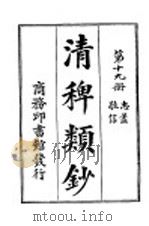 第十九冊
忠藎
敬信
清稗類鈔
商務印書館發行